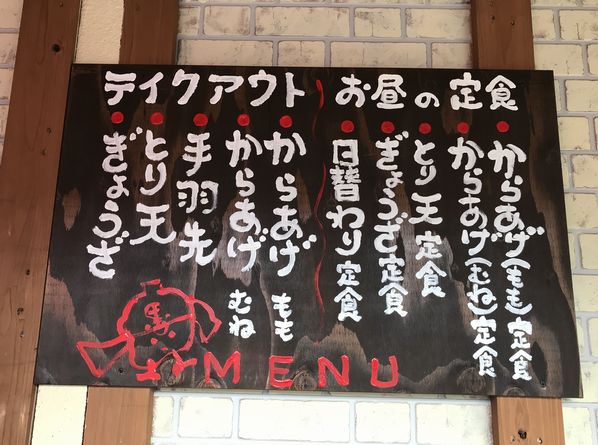 お昼の定食
からあげ(もも)定食
からあげ(むね)定食
とり天定食
ぎょうざ定食
日替わり定食
テイクアウト
からあげ もも
からあげ むね
手羽先
とり天
ぎょうざ
MENU